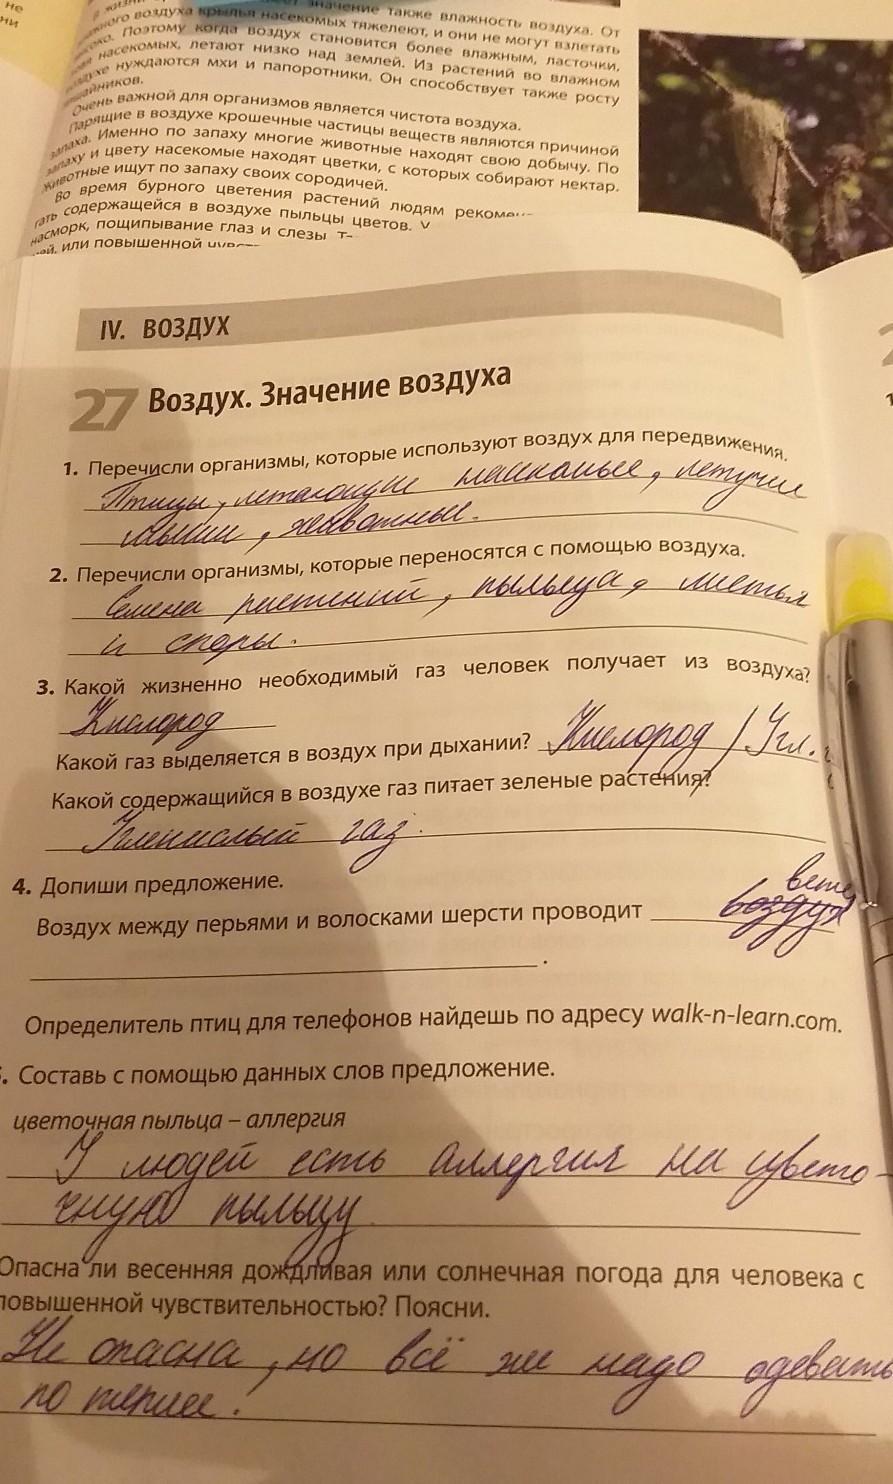 не
ни
значение также влажность воздуха. От
воздуха крылья насекомых тяжелеют, и они не могут взлетать
Поэтому когда воздух становится более влажным, ласточки,
насекомых, летают низко над землей. Из растений во влажном
нуждаются мхи и папоротники. Он способствует также росту
Очень важной для организмов является чистота воздуха.
Парящие в воздухе крошечные частицы веществ являются причиной
запаха. Именно по запаху многие животные находят свою добычу. По
запаху и цвету насекомые находят цветки, с которых собирают нектар.
Животные ищут по запаху своих сородичей.
Во время бурного цветения растений людям
содержащейся в воздухе пыльцы цветов.
насморк, пощипывание глаз и слезы
или повышенной
IV. ВОЗДУХ
27 Воздух. Значение воздуха
1. Перечисли организмы, которые используют воздух для передвижения.
Птицы, летающие насекомые, летучие
мыши,
2. Перечисли организмы, которые переносятся с помощью воздуха.
Семена растений, пыльца, листья
и споры.
3. Какой жизненно необходимый газ человек получает из воздуха?
Кислород
Какой газ выделяется в воздух при дыхании? Кислород / Угл.
Какой содержащийся в воздухе газ питает зеленые растения?
Углекислый газ.
4. Допиши предложение.
Воздух между перьями и волосками шерсти проводит воздух
Определитель птиц для телефонов найдешь по адресу walk-n-learn.com.
. Составь с помощью данных слов предложение.
цветочная пыльца – аллергия
У людей есть аллергия на цвето-
чную пыльцу
Опасна ли весенняя дождливая или солнечная погода для человека с
повышенной чувствительностью? Поясни.
Не опасна, но всё же надо одевать
по теплее.